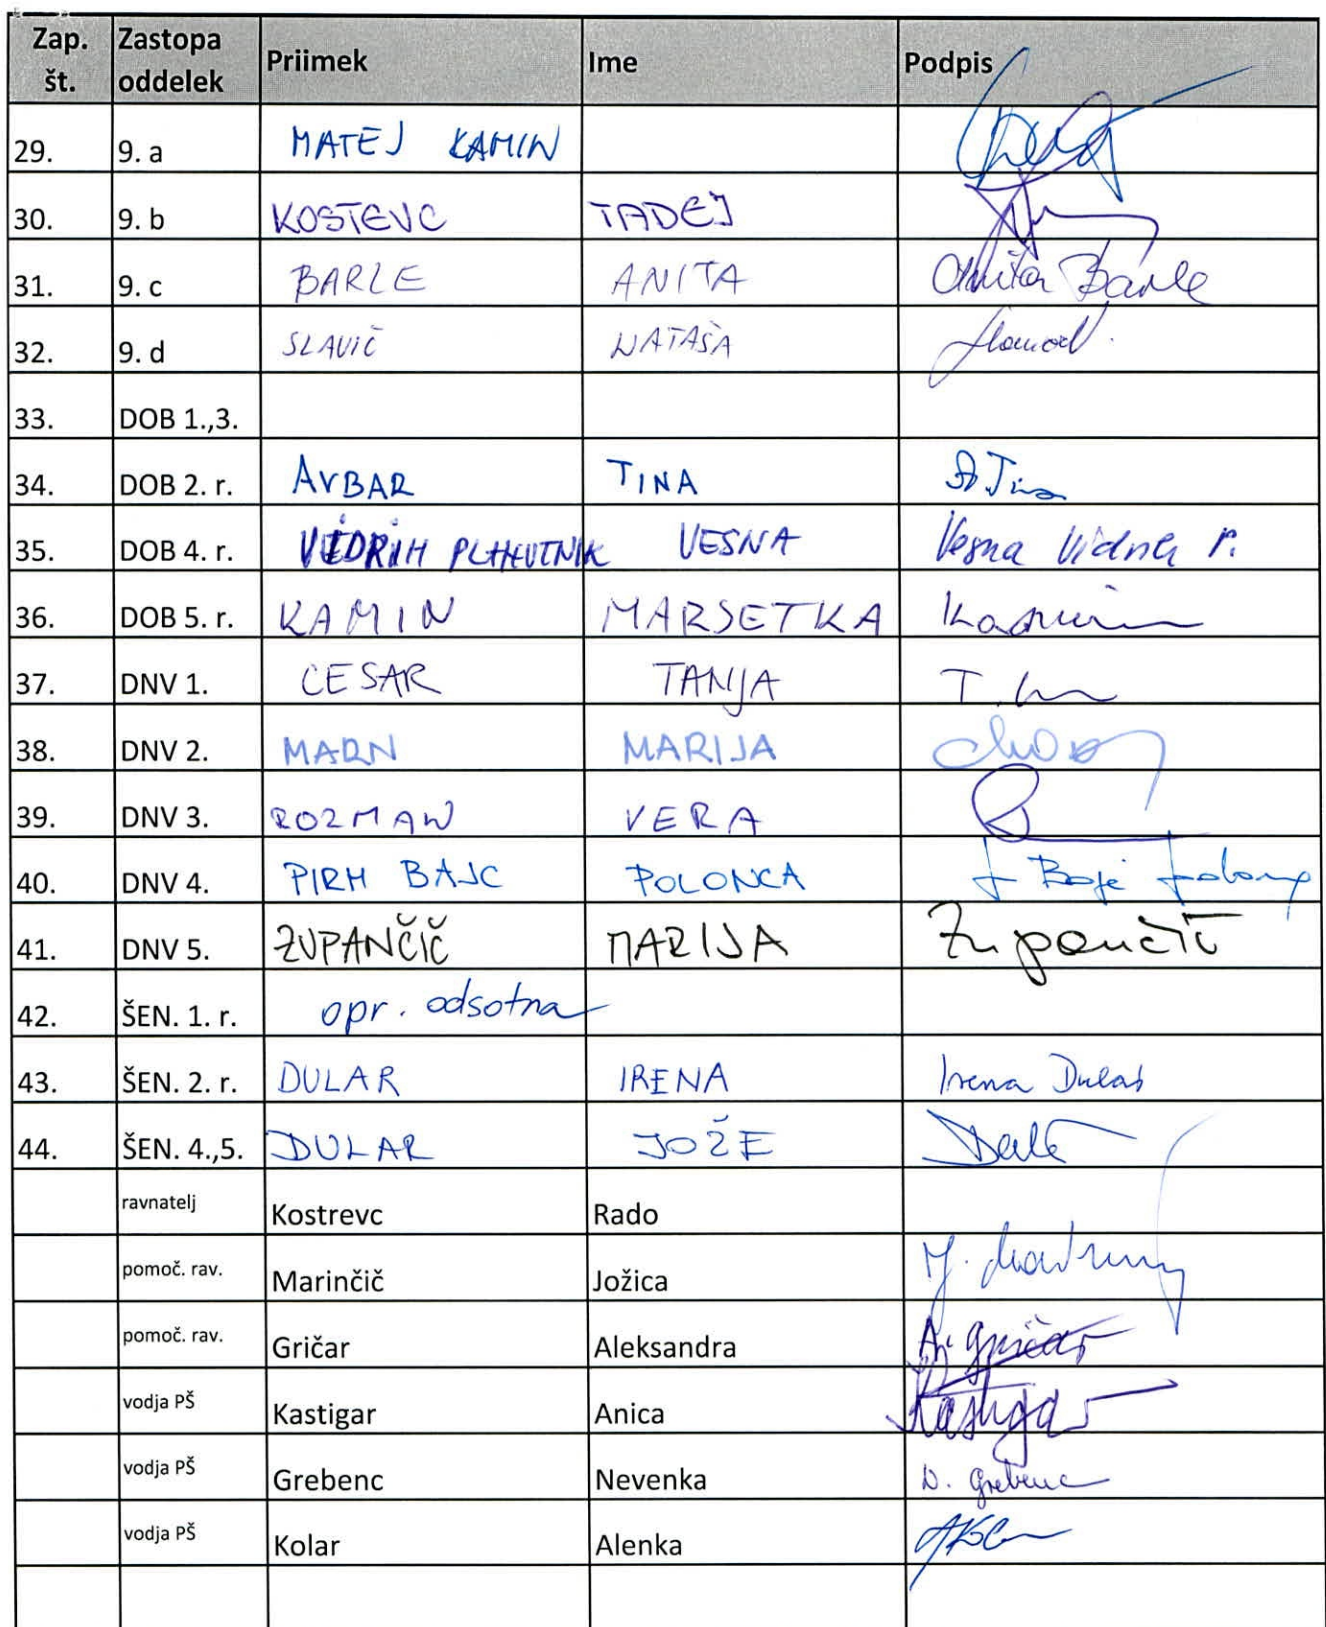 Zap. št. Zastopa oddelek Priimek Ime Podpis
29. 9. a MATEJ KAMIN
30. 9. b KOSTEVC TADEJ
31. 9. c BARLE ANITA Anita Barle
32. 9. d SLAVIČ NATAŠA
33. DOB 1.,3.
34. DOB 2. r. AVBAR TINA
35. DOB 4. r. VESNA Vesna
36. DOB 5. r. KAMIN MARSETKA Kamin
37. DNV 1. CESAR TANJA
38. DNV 2. MARN MARIJA
39. DNV 3. ROZMAN VERA
40. DNV 4. PIRH BAJC POLONCA
41. DNV 5. ZUPANČIČ MARIJA Zupančič
42. ŠEN. 1. r. opr. odsotna
43. ŠEN. 2. r. DULAR IRENA Irena Dular
44. ŠEN. 4.,5. DULAR JOŽE
ravnatelj Kostrevc Rado
pomoč. rav. Marinčič Jožica
pomoč. rav. Gričar Aleksandra A. Gričar
vodja PŠ Kastigar Anica Kastigar
vodja PŠ Grebenc Nevenka N. Grebenc
vodja PŠ Kolar Alenka